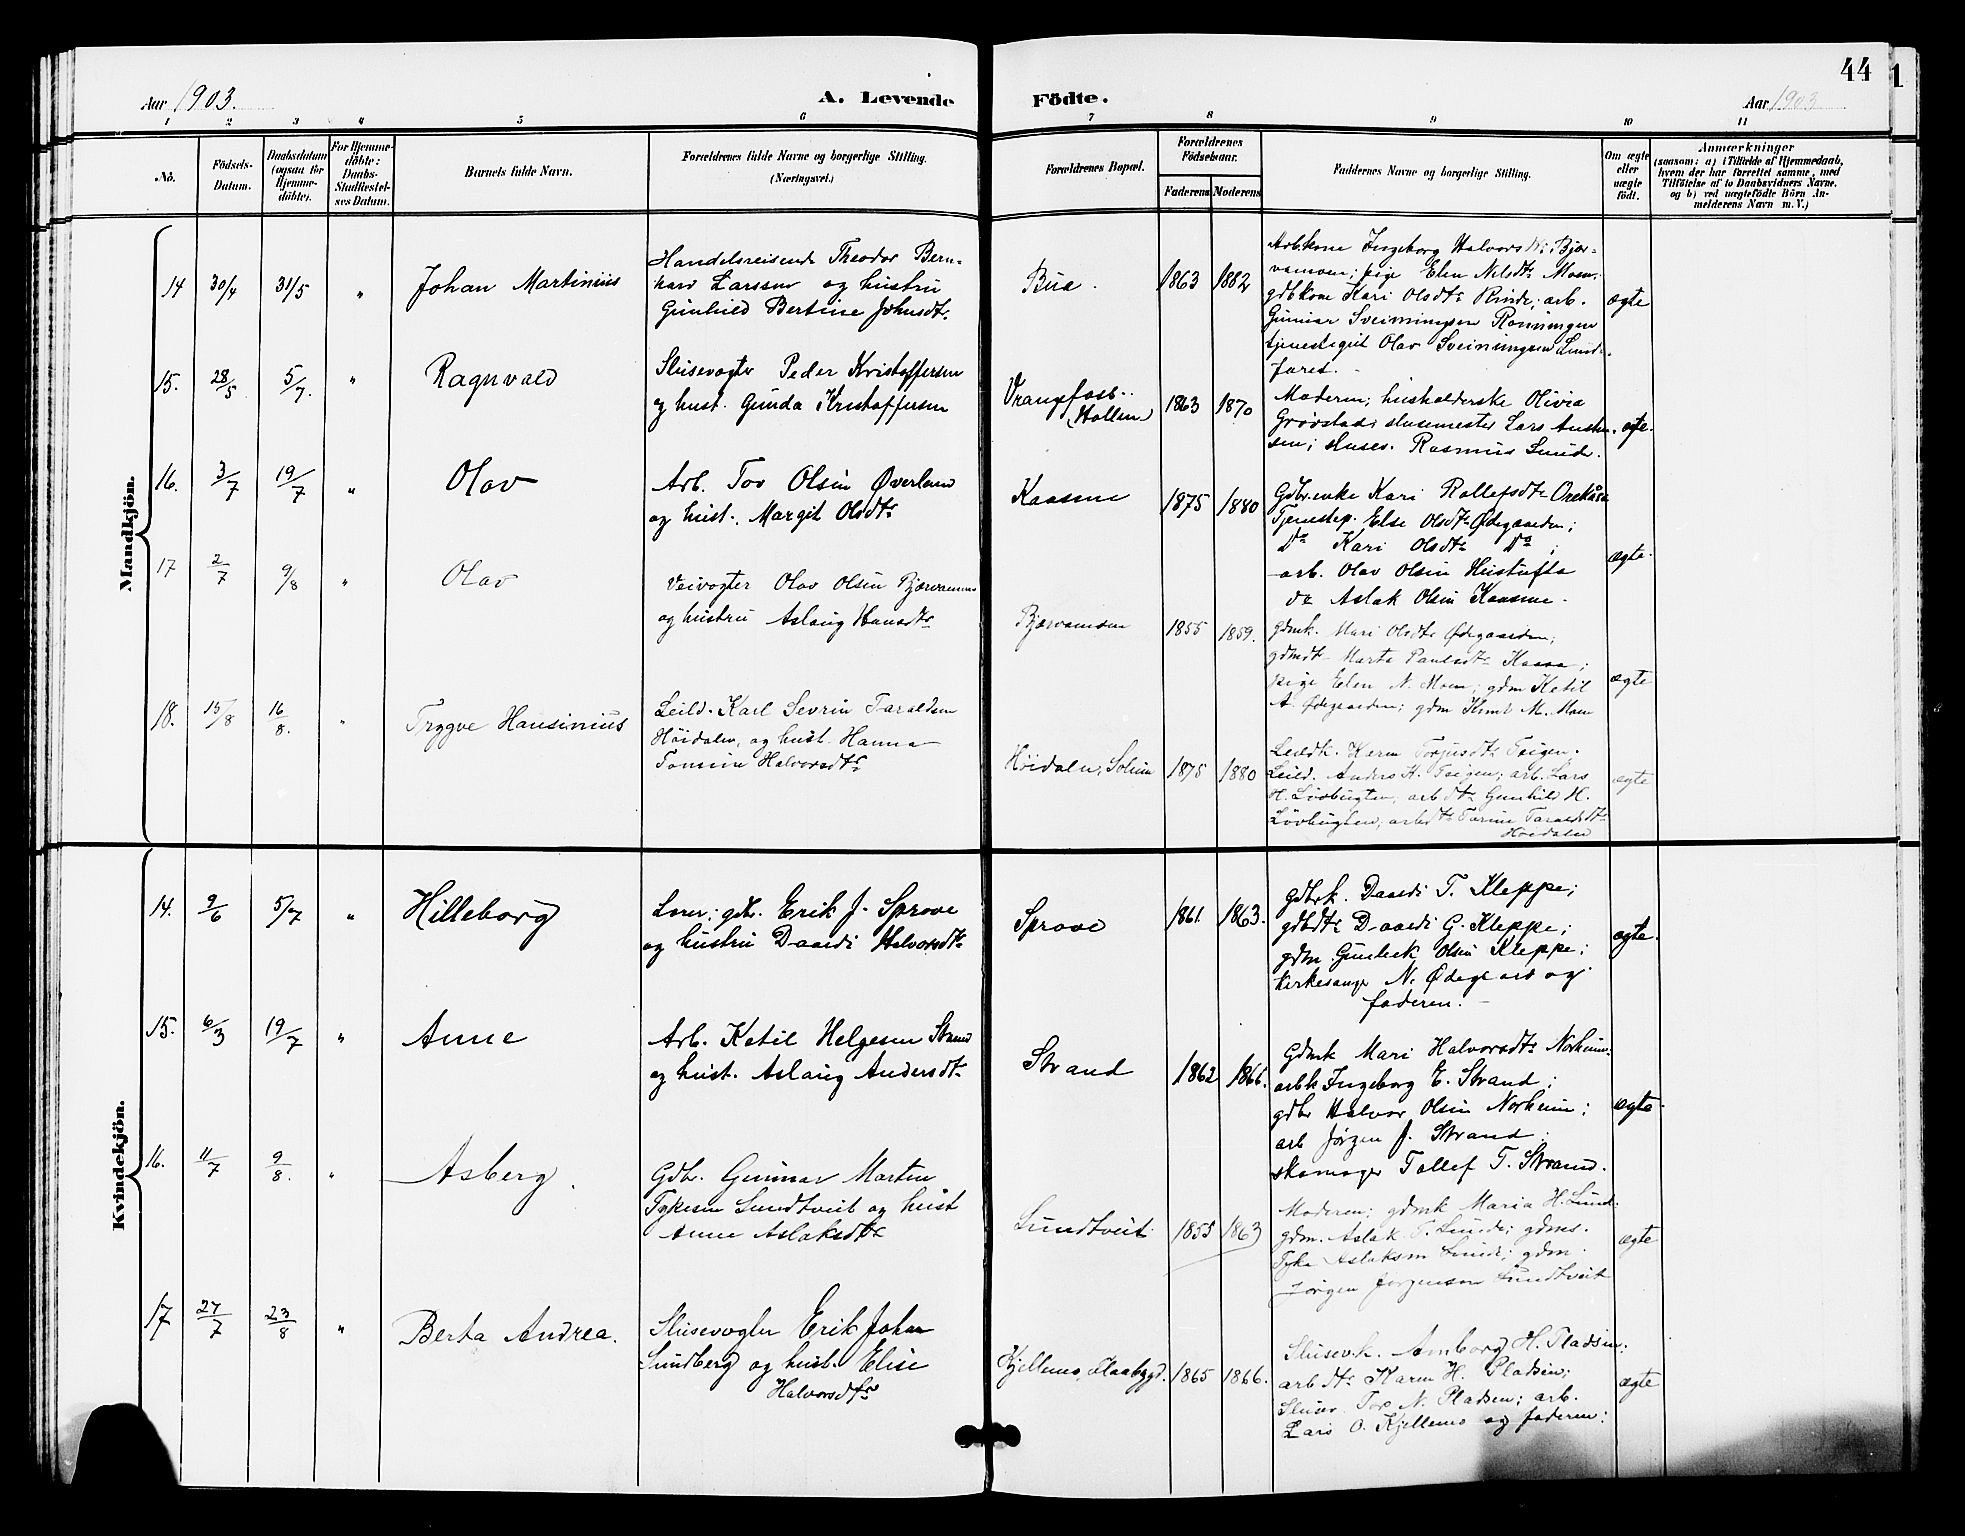 44
1
Aar 1903.
A. Levende
Födte.
Aar 1903
1 2 3 4 5 6 7 8 9 10 11
No.
Födsels-
Datum.
Daabsdatum
(ogsaa for
Hjemme-
döbte).
For Hjemme-
döbte:
Daabs-
Stadfæstel-
ses Datum.
Barnets fulde Navn.
Forældrenes fulde Navne og borgerlige Stilling.
(Næringsvei.)
Forældrenes Bopæl.
Forældrenes
Födselsaar.
Faderens
Moderens
Faddernes Navne og borgerlige Stilling.
Om ægte
eller
uægte
födt.
Anmærkninger
(saasom: a) i Tilfælde af Hjemmedaab,
hvem der har forrettet samme, med
Tilföielse af to Daabsvidners Navne,
og b) ved uægtefödte Börn An-
melderens Navn m. V.)
Mandkjön.
14 30/4 31/5 " Johan Martinius
Handelsreisende Theodor Bern-
hard Larssen og hustru
Gunhild Bertine Johnsdtr
Bua. 1863 1882
Arb.kone Ingeborg Halvorsdtr Bjør-
vamoen; pige Elen Nilsdtr Moen;
gdbkone Kari Olsdtr Rinde; arb.
Gunnar Sveinungsen Rønningen
tjenestegut Olav Sveinungsen Lund-
faret.
ægte
15. 28/5 5/7. " Ragnvald
Slusevogter Peder Kristoffersen
og hust. Gunda Kristoffersen
Vrangfoss..
(Hollen) 1863 1870
Moderen; husholderske Olivia
Grøvstad; slusemester Lars Austen-
sen; sluses. Rasmus Lunde.
ægte.
16. 3/7 19/7 " Olav
Arb. Tov Olsen Øverland
og hust. Margit Olsdtr
Kaasene 1875 1880
Gdbr.enke Kari Rollefsdtr
Tjenestep. Else Olsdtr Ødegaarden;
Do Kari Olsdtr Do;
arb. Olav Olsen Hustufta
do Aslak Olsen Kaasene.
ægte.
17 2/7 9/8 " Olav
Veivogter Olav Olsen Bjørvamoen
og hustru Aslaug Hansdtr
Bjørvamoen 1855 1859.
gdmk. Mari Olsdtr Ødegaarden;
gdmdt Marta Paulsdtr Kaasa;
pige Elen N. Moen; gdm Ketil
A. Ødegaarden; gdm Knut M. Moen
ægte
18. 15/8 16/8. " Trygve Hansinius
Leild. Karl Sevrin Taraldsen
Høidalen, og hust. Hanna
Tomine Halvorsdtr
Høidalen, Solum 1875 1880
Leildk. Karen Torjusdtr Teigen.
Leild. Anders H. Teigen; arb. Lars
H. Løvbugten; arb.dtr Gunhild H.
Løvbugten; arbdtr Tarine Taraldsdtr
Høidalen
ægte
Kvindekjön.
14. 9/6 5/7 " Hilleborg
Lærer; gbr. Erik J. Sprove
og hustru Daardi Halvorsdtr
Sprove 1861. 1863.
gdbrk. Daardi T. Kleppe;
gdbdtr Daardi G. Kleppe;
gdm. Gunleik Olsen Kleppe;
kirkesanger N. Ødegaard og
faderen.
ægte.
15. 6/3 19/7 " Anne
Arb. Ketil Helgesen Strand
og hust. Aslaug Andersdt.
Strand 1862 1866.
Gdmk Mari Halvorsdtr Norheim.
arbk Ingeborg E. Strand;
gdbr Halvor Olsen Norheim;
arb Jørgen J. Strand;
skomager Tollef T. Strand.
ægte.
16. 11/7 9/8. " Asberg.
Gdbr. Gunnar Marten
Tykesen Lundtveit og hust
Anne Aslaksdtr
Lundtveit 1855 1863
Moderen; gdmk Maria H. Lund.
gdm. Aslak T. Lunde; gdms.
Tyke Aslaksen Lunde; gdm.
Jörgen Jörgenson Lundtveit
ægte
17 27/7 23/8 " Berta Andrea.
Slusevogter Erik Johan
Sundberg og hust. Elise
Halvorsdtr
Kjellemo, Flaabygd. 1865 1866.
Slusev.k. Amborg H. Pladsen;
arb dtr Karen H. Pladsen;
Slusev. Tov N. Pladsen; arb.
Lars O. Kjellemo og faderen.
ægte